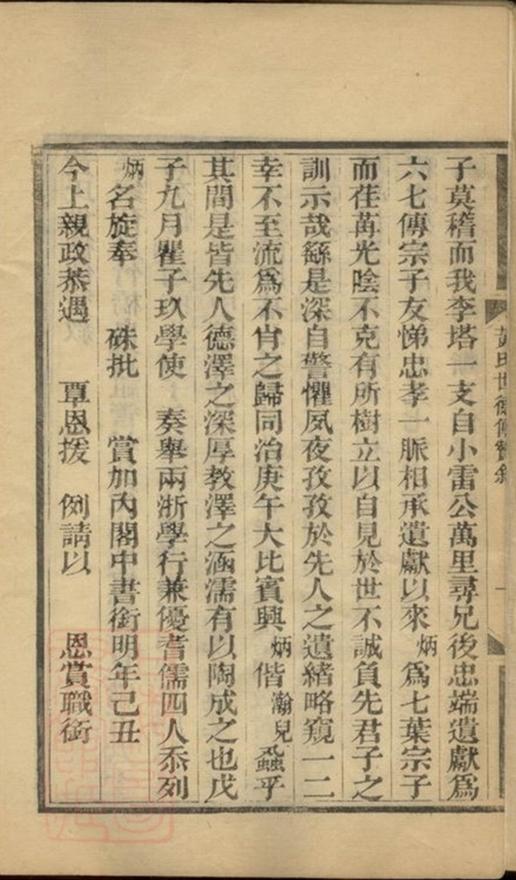 黃氏世德傳贊敘
子莫稽而我李塔一支自小雷公萬里尋兄後忠端遺獻爲
六七傳宗子友悌忠孝一脈相承遺獻以來炳爲七葉宗子
而荏苒光陰不克有所樹立以自見於世不誠負先君子之
訓示哉繇是深自警懼夙夜孜孜於先人之遺緒略窺一二
幸不至流爲不肖之歸同治庚午大比賓興炳偕瀚兒蝨乎
其間是皆先人德澤之深厚教澤之涵濡有以陶成之也戊
子九月瞿子玖學使 奏舉兩浙學行兼優耆儒四人忝列
炳名旋奉 硃批 賞加內閣中書銜明年己丑
今上親政恭遇 覃恩援 例請以 恩賞職銜